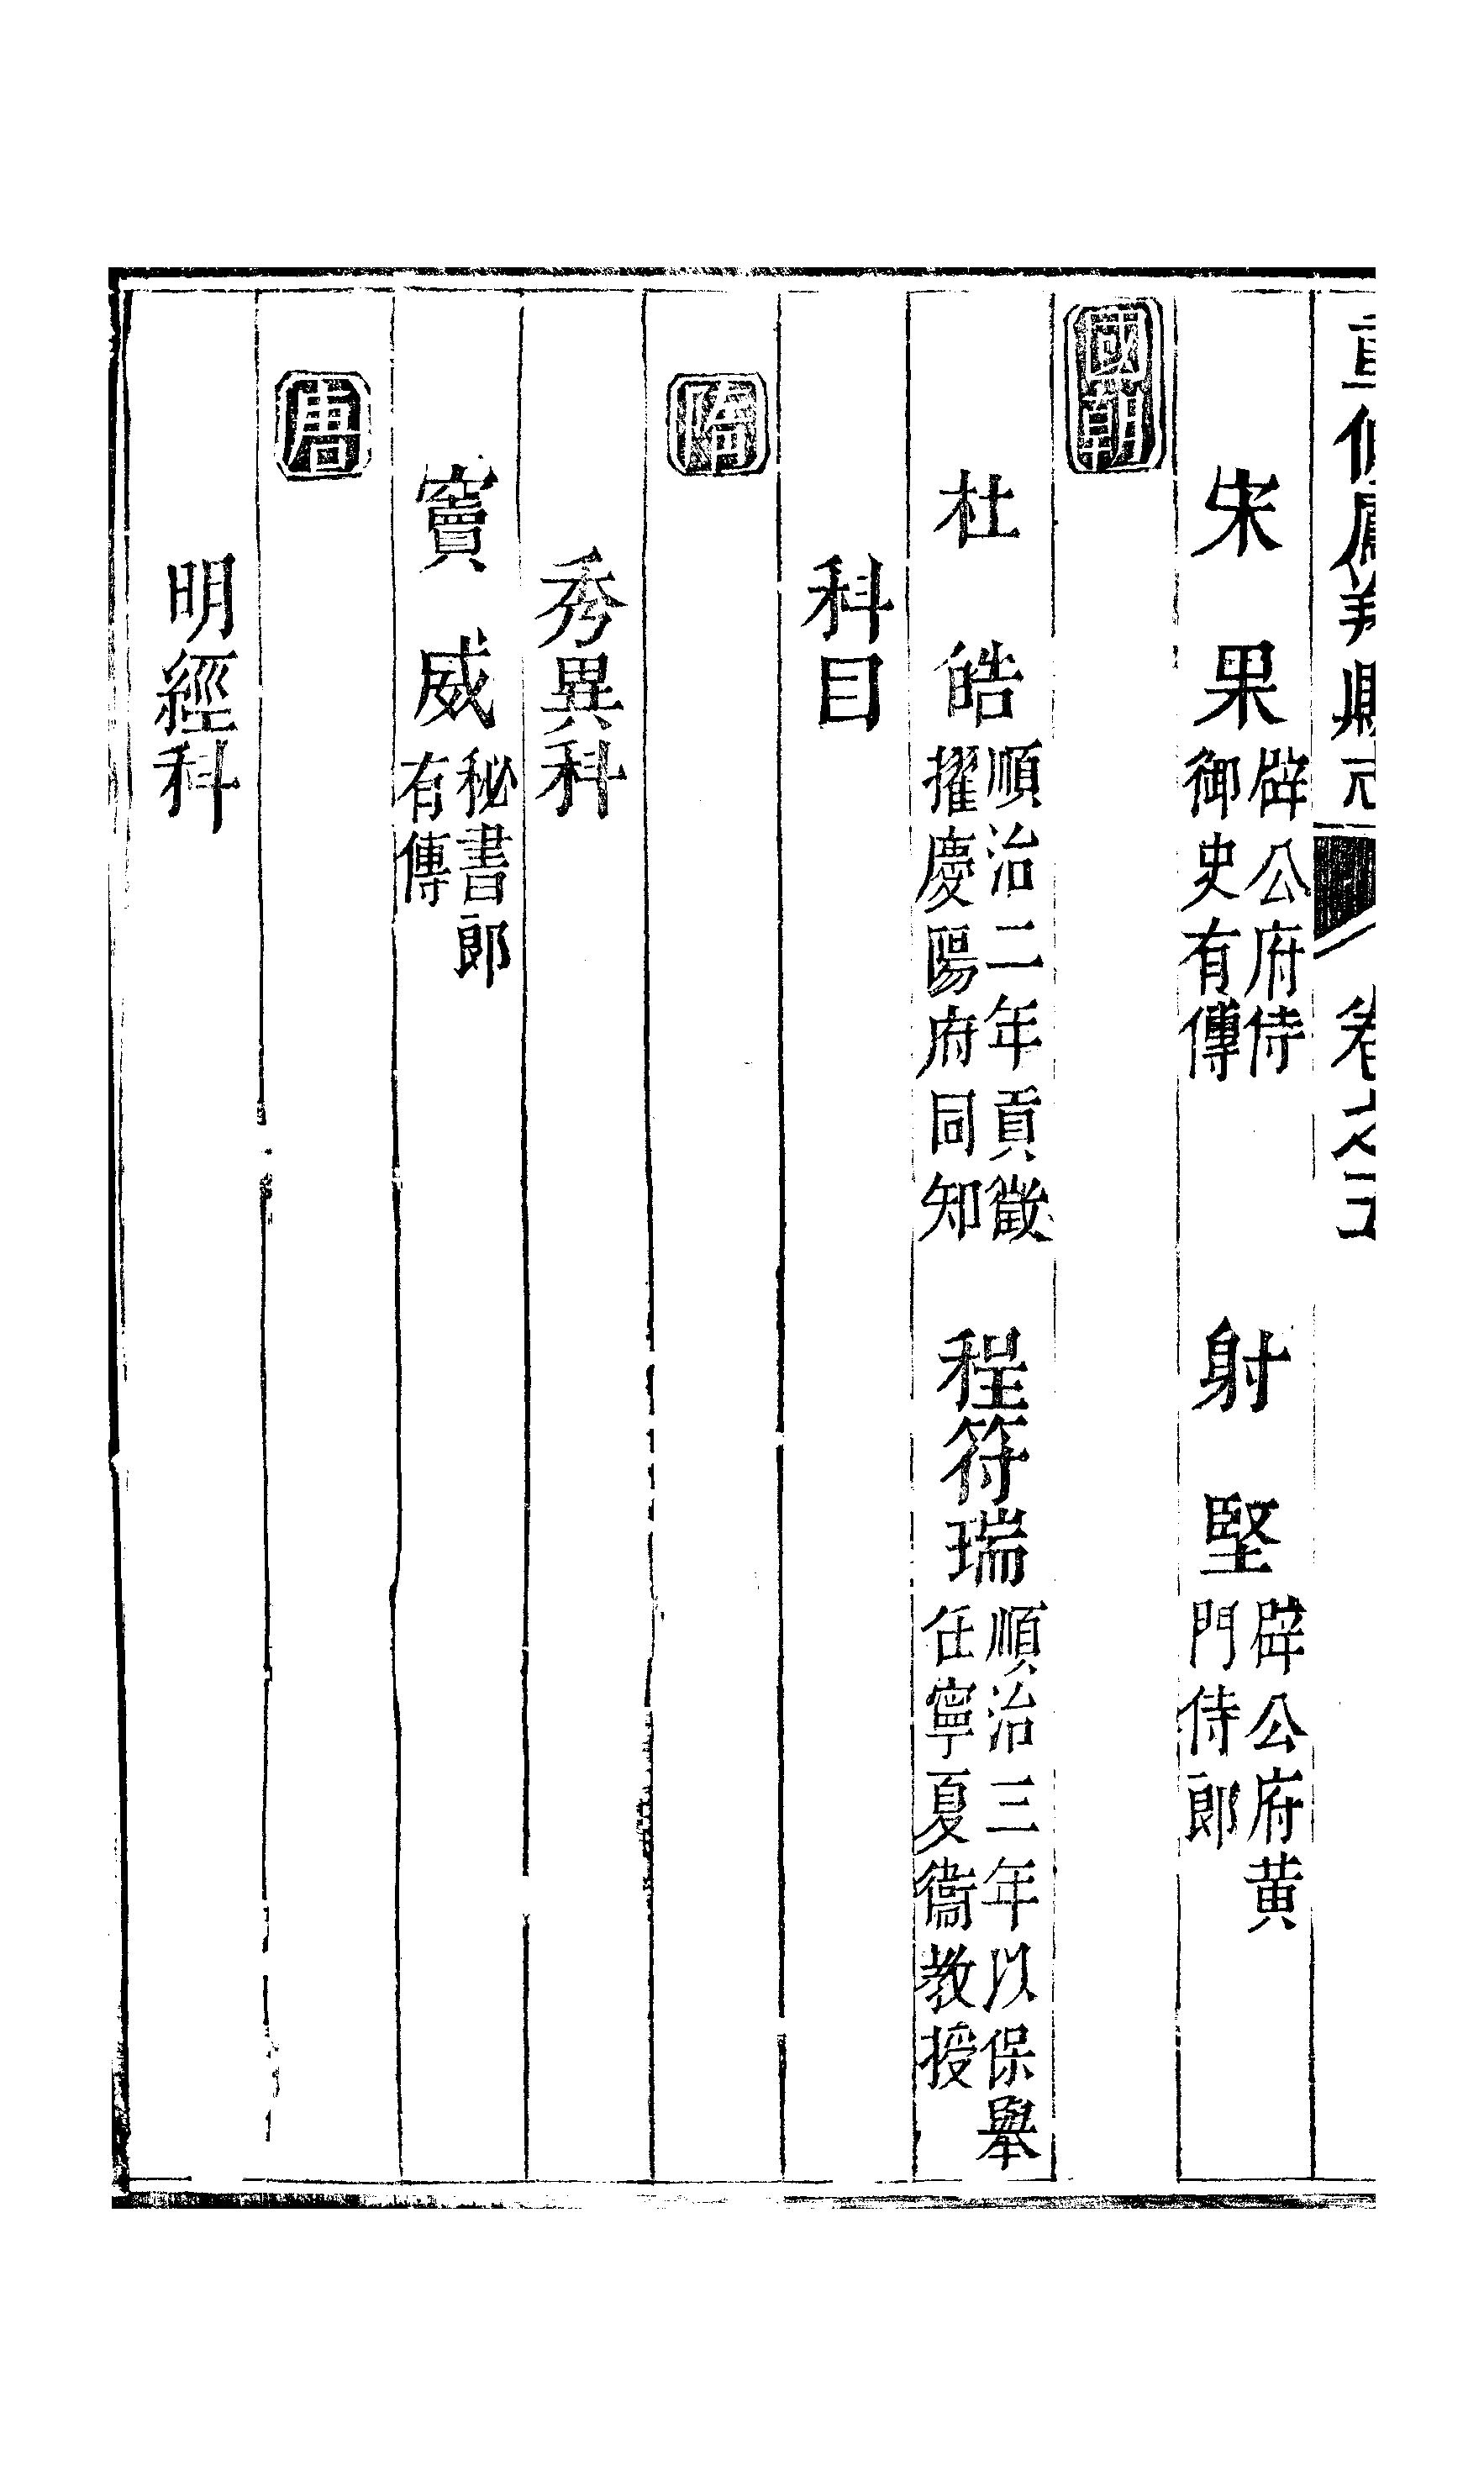 重修鳳翔縣志 卷之五
宋果 辟公府侍御史有傳 射堅 辟公府黄門侍郎
國朝
杜皓 順治二年貢徵擢慶陽府同知 程符瑞 順治三年以保舉任寧夏衞教授
科目
隋
秀異科
竇威 秘書郎有傳
唐
明經科